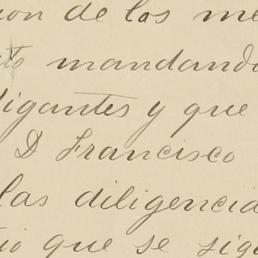 ion de los me
to mandando
ligantes y que
D Francisco
las diligencia
tio que se sigu